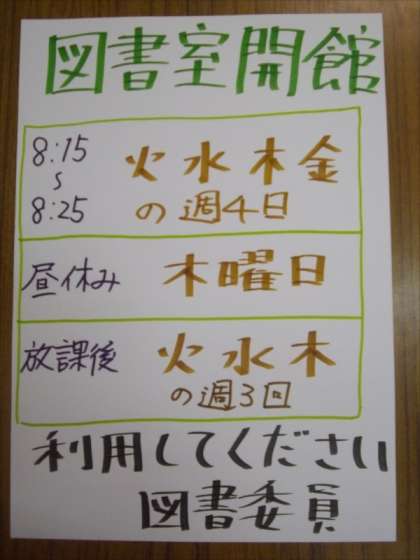 図書室開館
8:15
~
8:25
火水木金
の週4日
昼休み
木曜日
放課後
火水木
の週3回
利用してください
図書委員